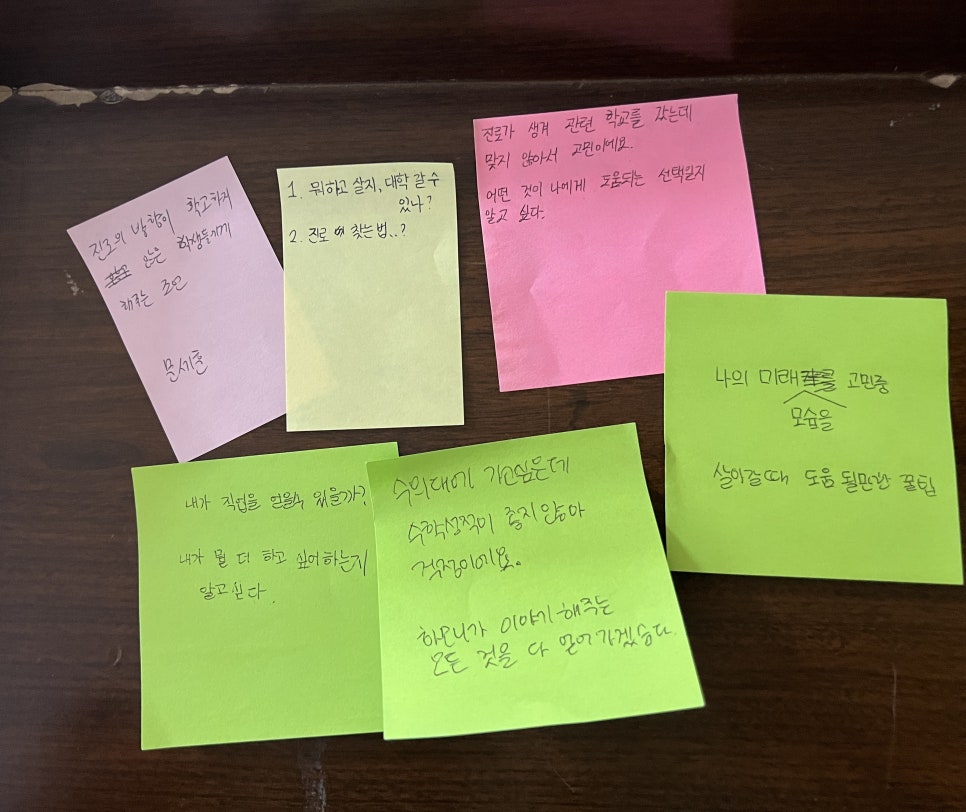 진로의 방향이 확고하지
않은 학생들에게
해주는 조언
문세훈
1. 뭐하고 살지, 대학 갈 수
있나?
2. 진로 찾는 법..?
진로가 생겨 관련 학교를 갔는데
맞지 않아서 고민이에요.
어떤 것이 나에게 도움되는 선택일지
알고 싶다.
나의 미래 고민중
모습을
살아갈 때 도움 될만한 꿀팁
내가 직업을 얻을수 있을까?
내가 뭘 더 하고 싶어하는지
알고싶다.
수의대에 가고싶은데
수학성적이 좋지 않아
걱정이에요.
이야기 해주는
모든 것을 다 얻어가겠습니다.